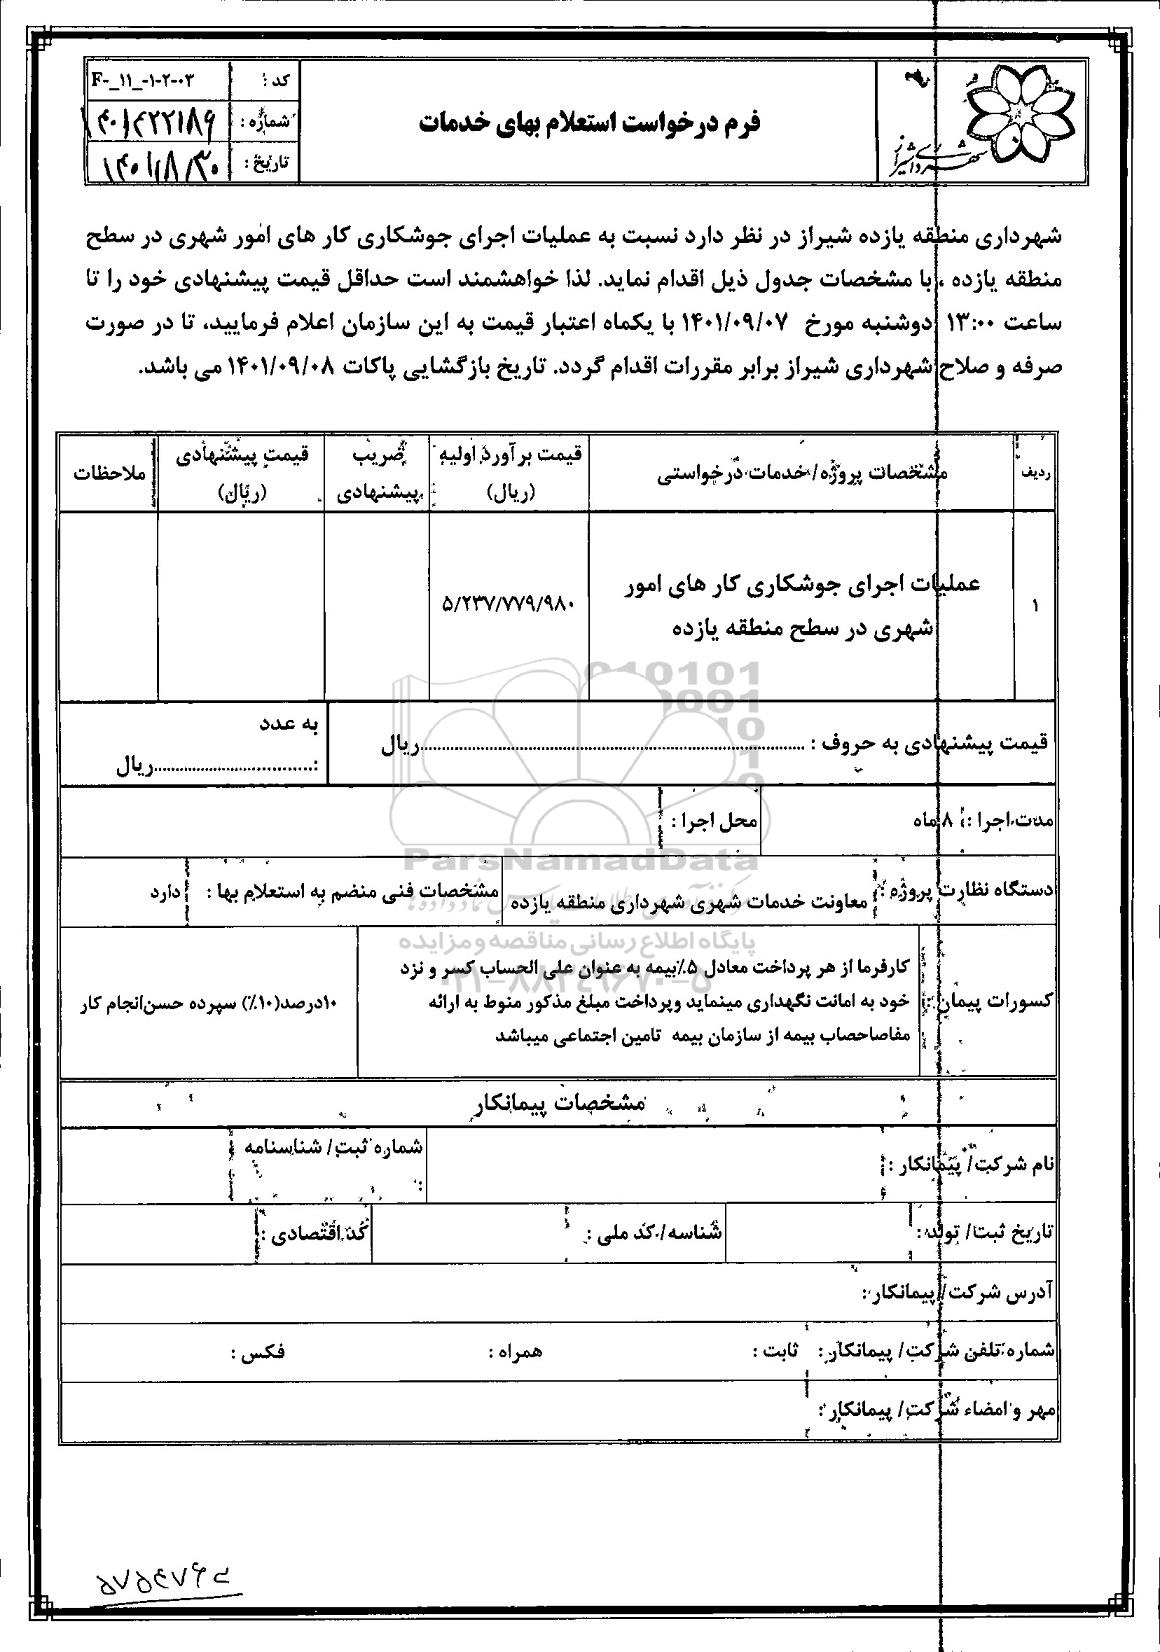 شهرداری شیراز
فرم درخواست استعلام بهای خدمات
کد : F-_۱۱_-۱-۲-۰۳
شماره : ۱۴۰۱۴۲۲۱۸۹
تاریخ : ۱۴۰۱/۸/۳۰
شهرداری منطقه یازده شیراز در نظر دارد نسبت به عملیات اجرای جوشکاری کار های امور شهری در سطح
منطقه یازده ، با مشخصات جدول ذیل اقدام نماید. لذا خواهشمند است حداقل قیمت پیشنهادی خود را تا
ساعت ۱۳:۰۰ دوشنبه مورخ ۱۴۰۱/۰۹/۰۷ با یکماه اعتبار قیمت به این سازمان اعلام فرمایید، تا در صورت
صرفه و صلاح شهرداری شیراز برابر مقررات اقدام گردد. تاریخ بازگشایی پاکات ۱۴۰۱/۰۹/۰۸ می باشد.
ردیف مشخصات پروژه/ خدمات درخواستی قیمت برآورد اولیه (ریال) ضریب پیشنهادی قیمت پیشنهادی (ریال) ملاحظات
۱ عملیات اجرای جوشکاری کار های امور ۵/۲۳۷/۷۷۹/۹۸۰
شهری در سطح منطقه یازده
010101
0001
10
1
0
قیمت پیشنهادی به حروف : ..........ریال
به عدد
:..........ریال
مدت اجرا : ۸ ماه محل اجرا :
ParsNamadData
دستگاه نظارت پروژه : معاونت خدمات شهری شهرداری منطقه یازده مشخصات فنی منضم به استعلام بها : دارد
پایگاه اطلاع رسانی مناقصه و مزایده
۰۲۱-۸۸۳۴۹۶۷۰-۵
کسورات پیمان : کارفرما از هر پرداخت معادل ۵٪بیمه به عنوان علی الحساب کسر و نزد
خود به امانت نگهداری مینماید وپرداخت مبلغ مذکور منوط به ارائه
مفاصاحصاب بیمه از سازمان بیمه تامین اجتماعی میباشد
۱۰درصد(۱۰٪) سپرده حسن انجام کار
مشخصات پیمانکار
نام شرکت/ پیمانکار : شماره ثبت/ شناسنامه :
تاریخ ثبت/ تولد : شناسه/ کد ملی : کد اقتصادی :
آدرس شرکت/ پیمانکار :
شماره تلفن شرکت/ پیمانکار : ثابت : همراه : فکس :
مهر و امضاء شرکت/ پیمانکار :